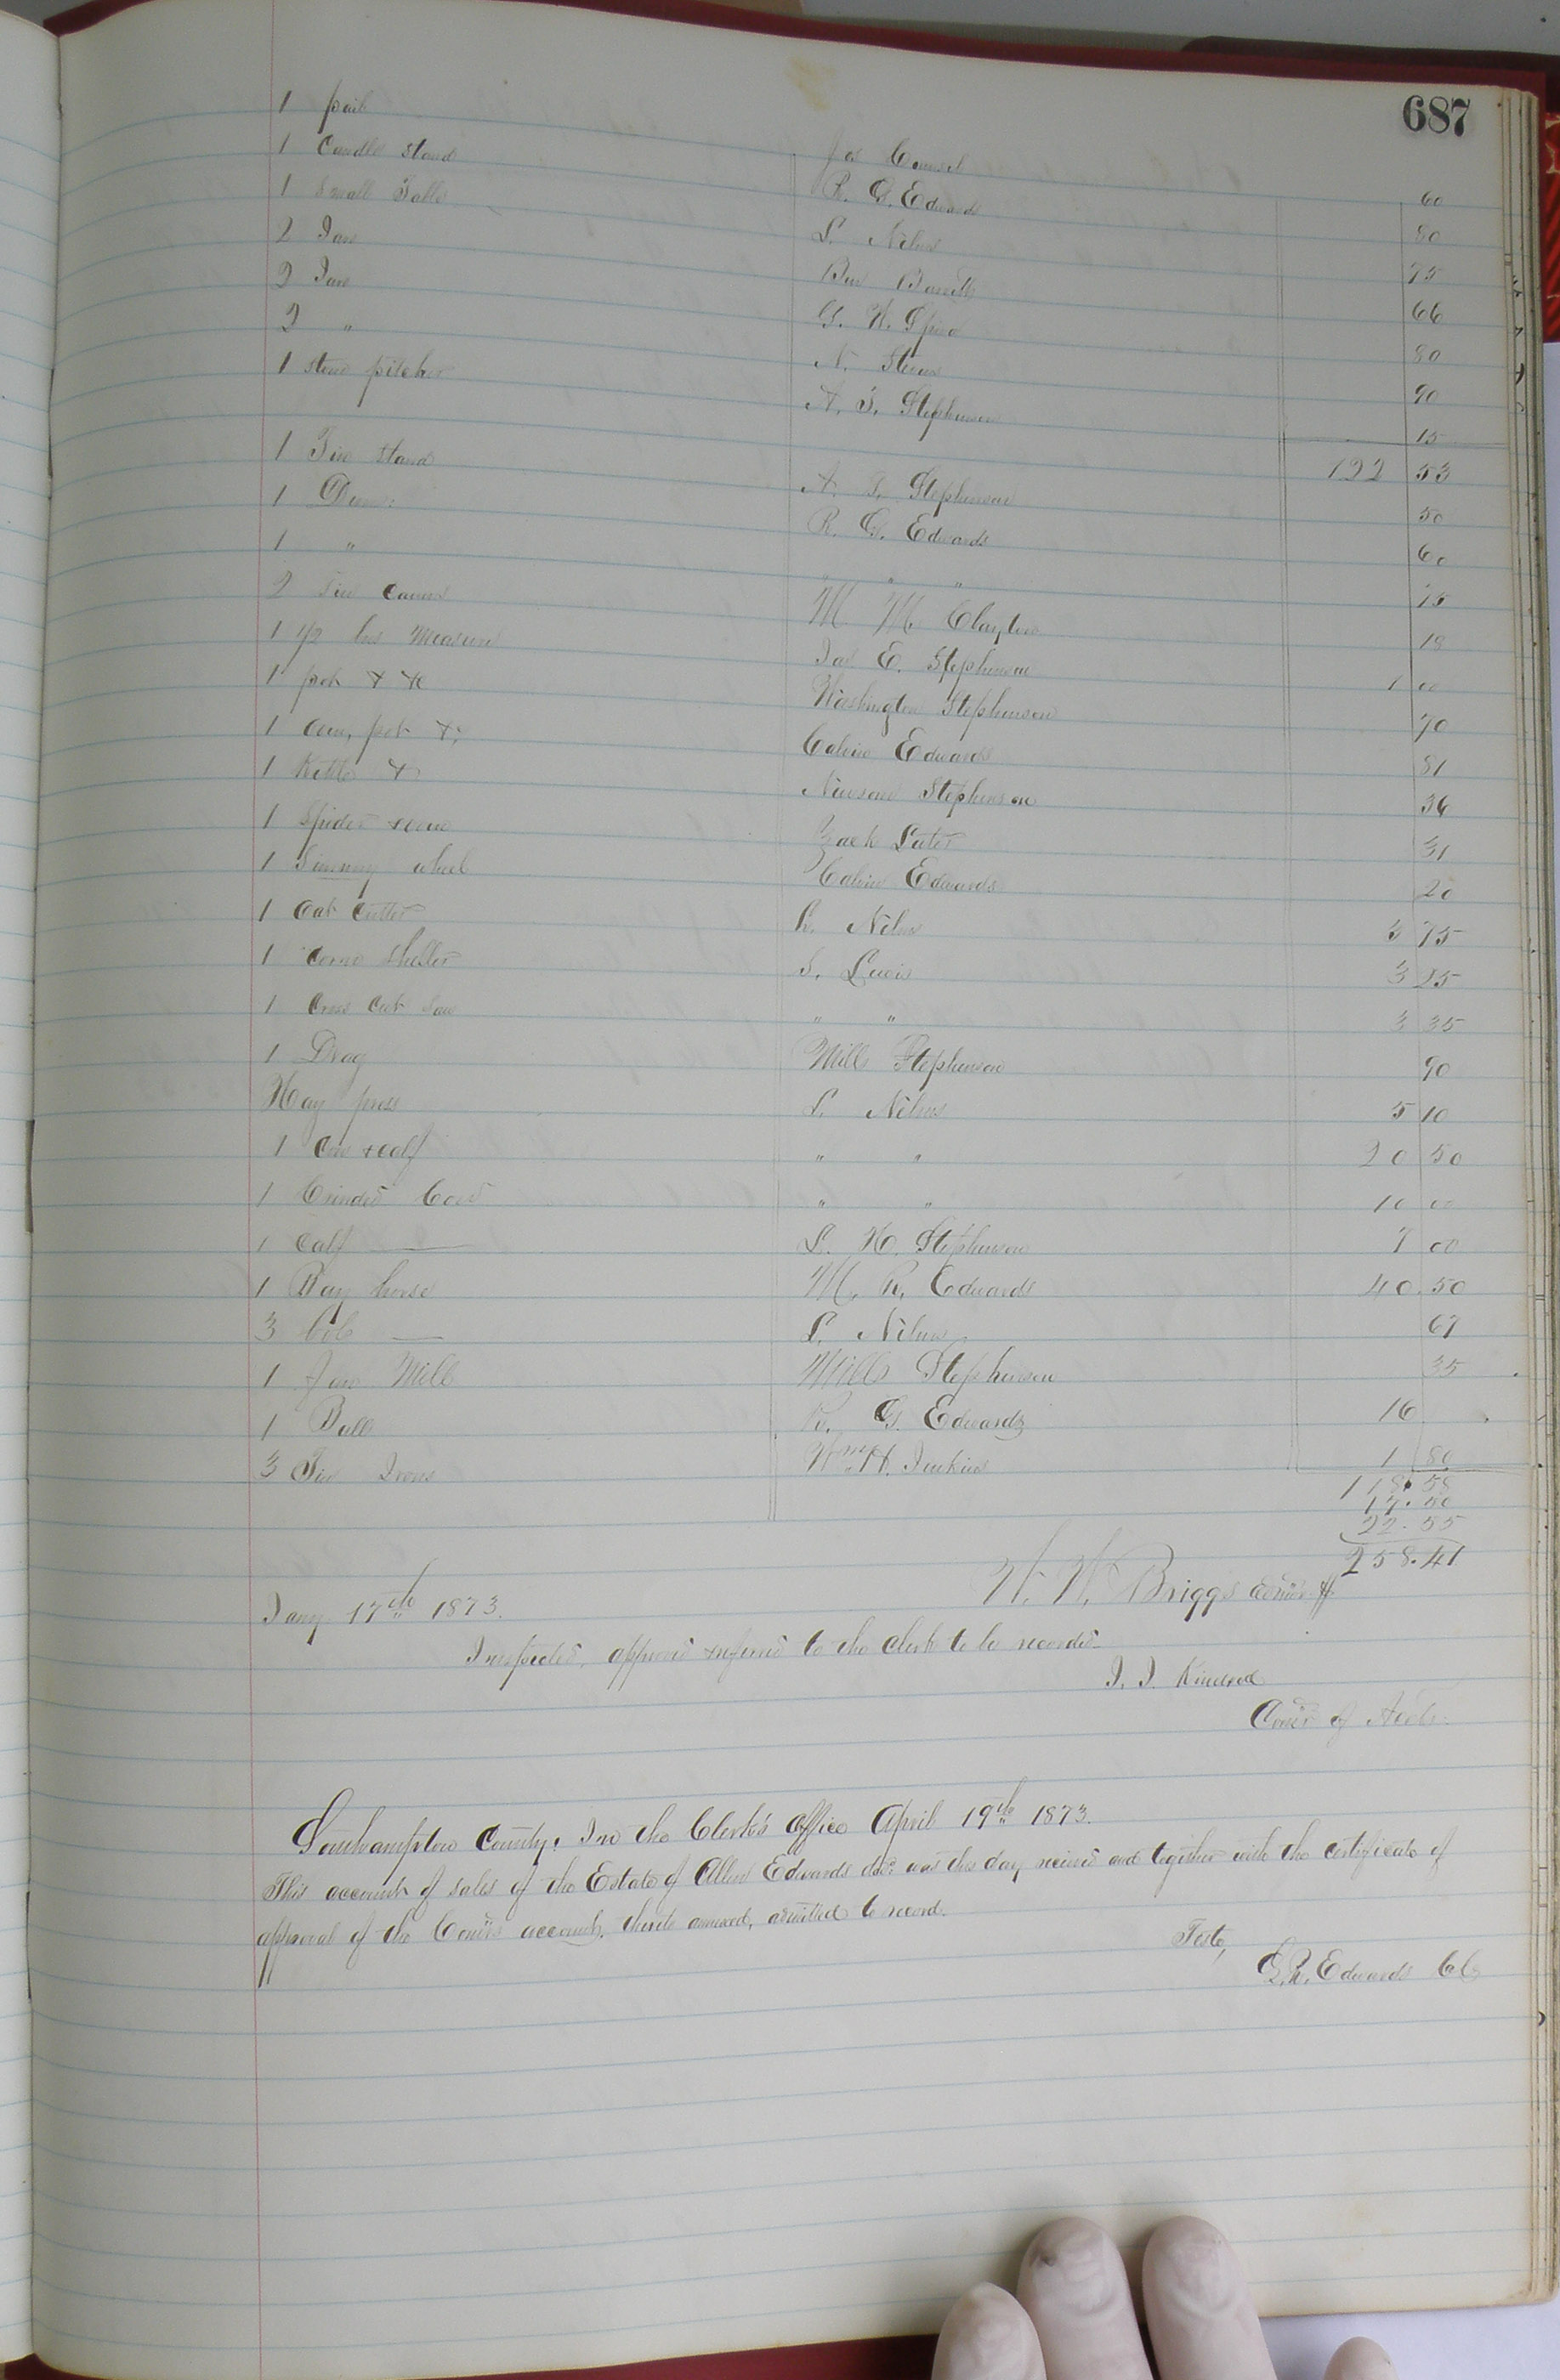 687
1 pail Jas Counsel 60
1 Candle stand R. G. Edwards 80
1 Small Table L. Niles 75
2 Jars Barrett 66
2 Jars G. W. 80
2 " N. 90
1 stone pitcher A. T. Stephenson 15
122 53
1 Tin stand A. T. Stephenson 50
1 R. G. Edwards 60
1 " " " 75
2 Tin M M Clayton 18
1 1/2 bus Measure Jas E. Stephenson 1 00
1 pot & &c Washington Stephenson 70
1 pot &c Calvin Edwards 81
1 Kettle & Newsom Stephenson 36
1 Spider & Zack 31
1 wheel Calvin Edwards 20
1 Oat Cutter L. Niles 3 75
1 Corn sheller S. Lewis 3 25
1 Cross Cut Saw " " 3 35
1 Drag Mills Stephenson 90
Hay press L. Niles 5 10
1 Cow & calf " " 20 50
1 Brinded Cow " " 10 00
1 Calf L. H. Stephenson 7 00
1 Bay horse M. R. Edwards 40.50
3 L. Niles 67
1 Fan Mill Mills Stephenson 35
1 Bull R. G. Edwards 16
3 Irons Wm H. Jenkins 1 80
118.58
17.50
22.55
258.41
W. W. Briggs
Jany 17th 1873.
Inspected, approved & referred to the Clerk to be recorded
J. J. Kindred
Comr of Accts.
Southampton County: In the Clerk's Office April 19th 1873.
This account of sales of the Estate of Allen Edwards dec: was this day received and together with the certificate of
approval of the Comr's accounts, thereto annexed, admitted to record.
Teste,
L. R. Edwards CC